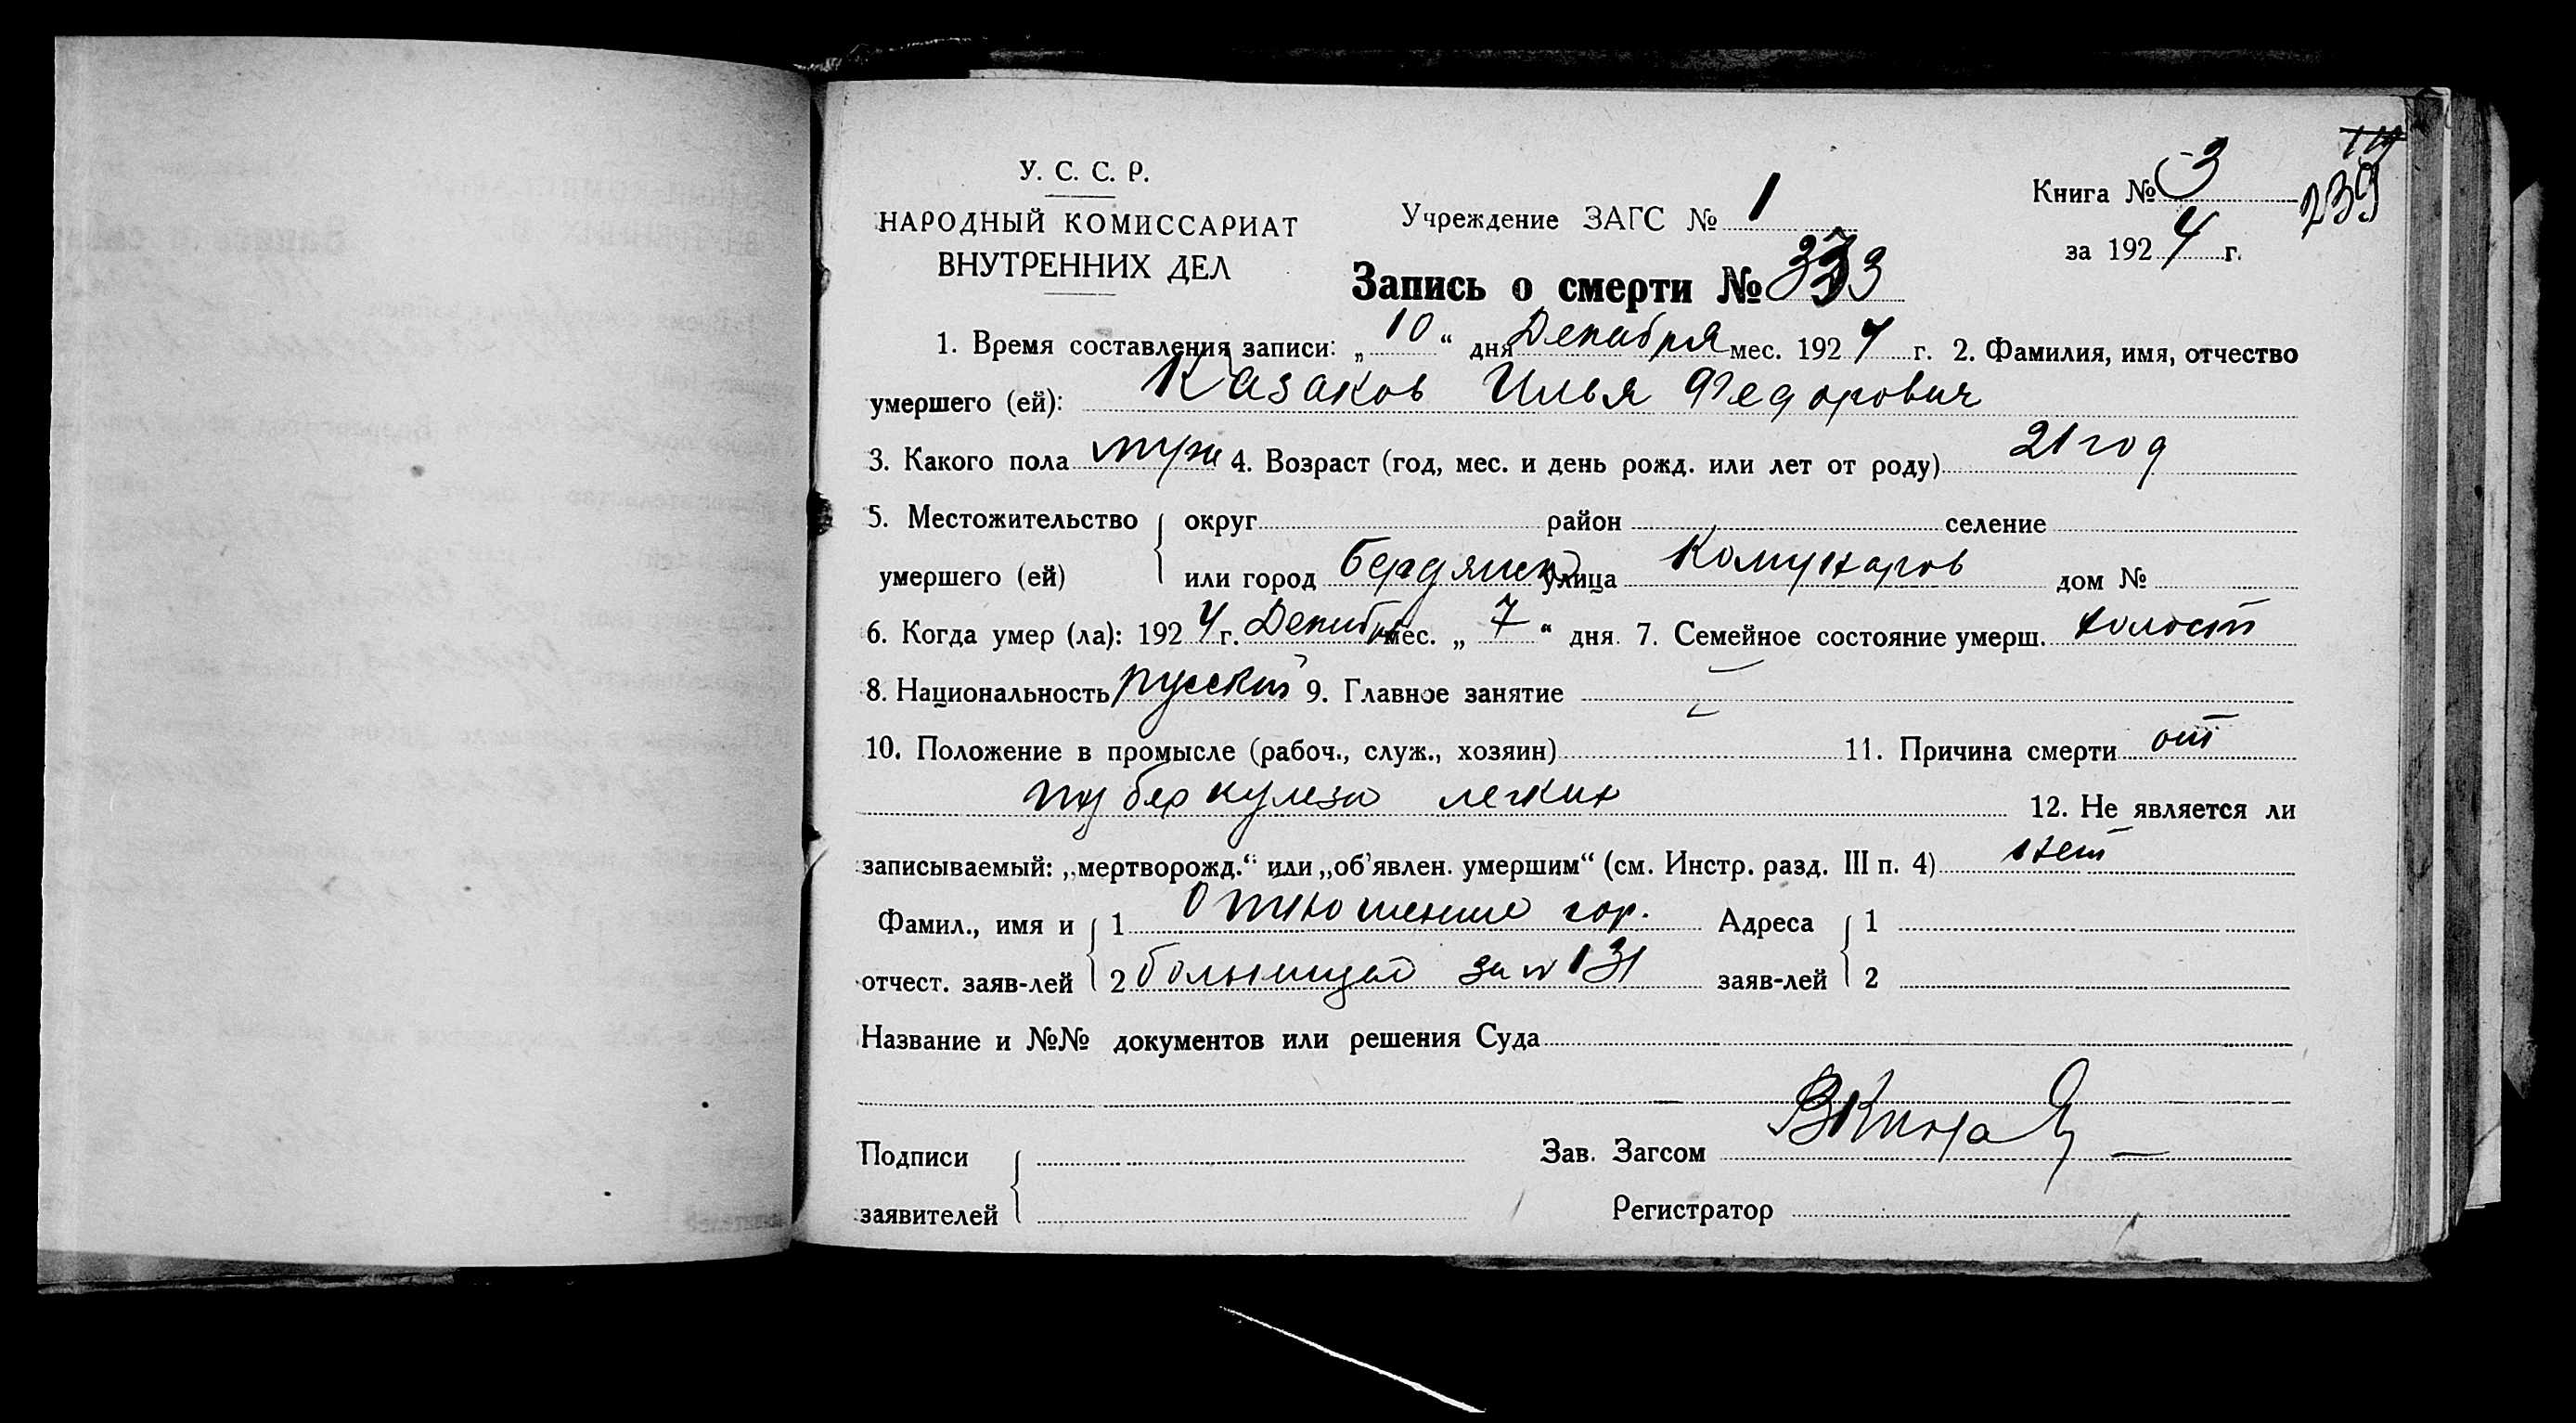 У. С. С. Р.
НАРОДНЫЙ КОМИССАРИАТ
ВНУТРЕННИХ ДЕЛ
Учреждение ЗАГС № 1
Книга № 3
239
за 1924 г.
Запись о смерти № 333
1. Время составления записи: „10“ дня Декабря мес. 1924 г. 2. Фамилия, имя, отчество
умершего (ей): Казаков Илья Федорович
3. Какого пола муж 4. Возраст (год, мес. и день рожд. или лет от роду) 21 год
5. Местожительство умершего (ей)
округ район селение
или город Бердянск улица Комунаров дом №
6. Когда умер (ла): 1924 г. Декабря мес. „7“ дня 7. Семейное состояние умерш. холост
8. Национальность русский 9. Главное занятие —
10. Положение в промысле (рабоч., служ., хозяин) 11. Причина смерти от
туберкулеза легких 12. Не является ли
записываемый: „мертворожд.“ или „об’явлен. умершим“ (см. Инстр. разд. III п. 4) нет
Фамил., имя и 1 Отношение гор. Адреса 1
отчест. заяв-лей 2 больницей за № 131 заяв-лей 2
Название и №№ документов или решения Суда
Подписи Зав. Загсом
заявителей Регистратор